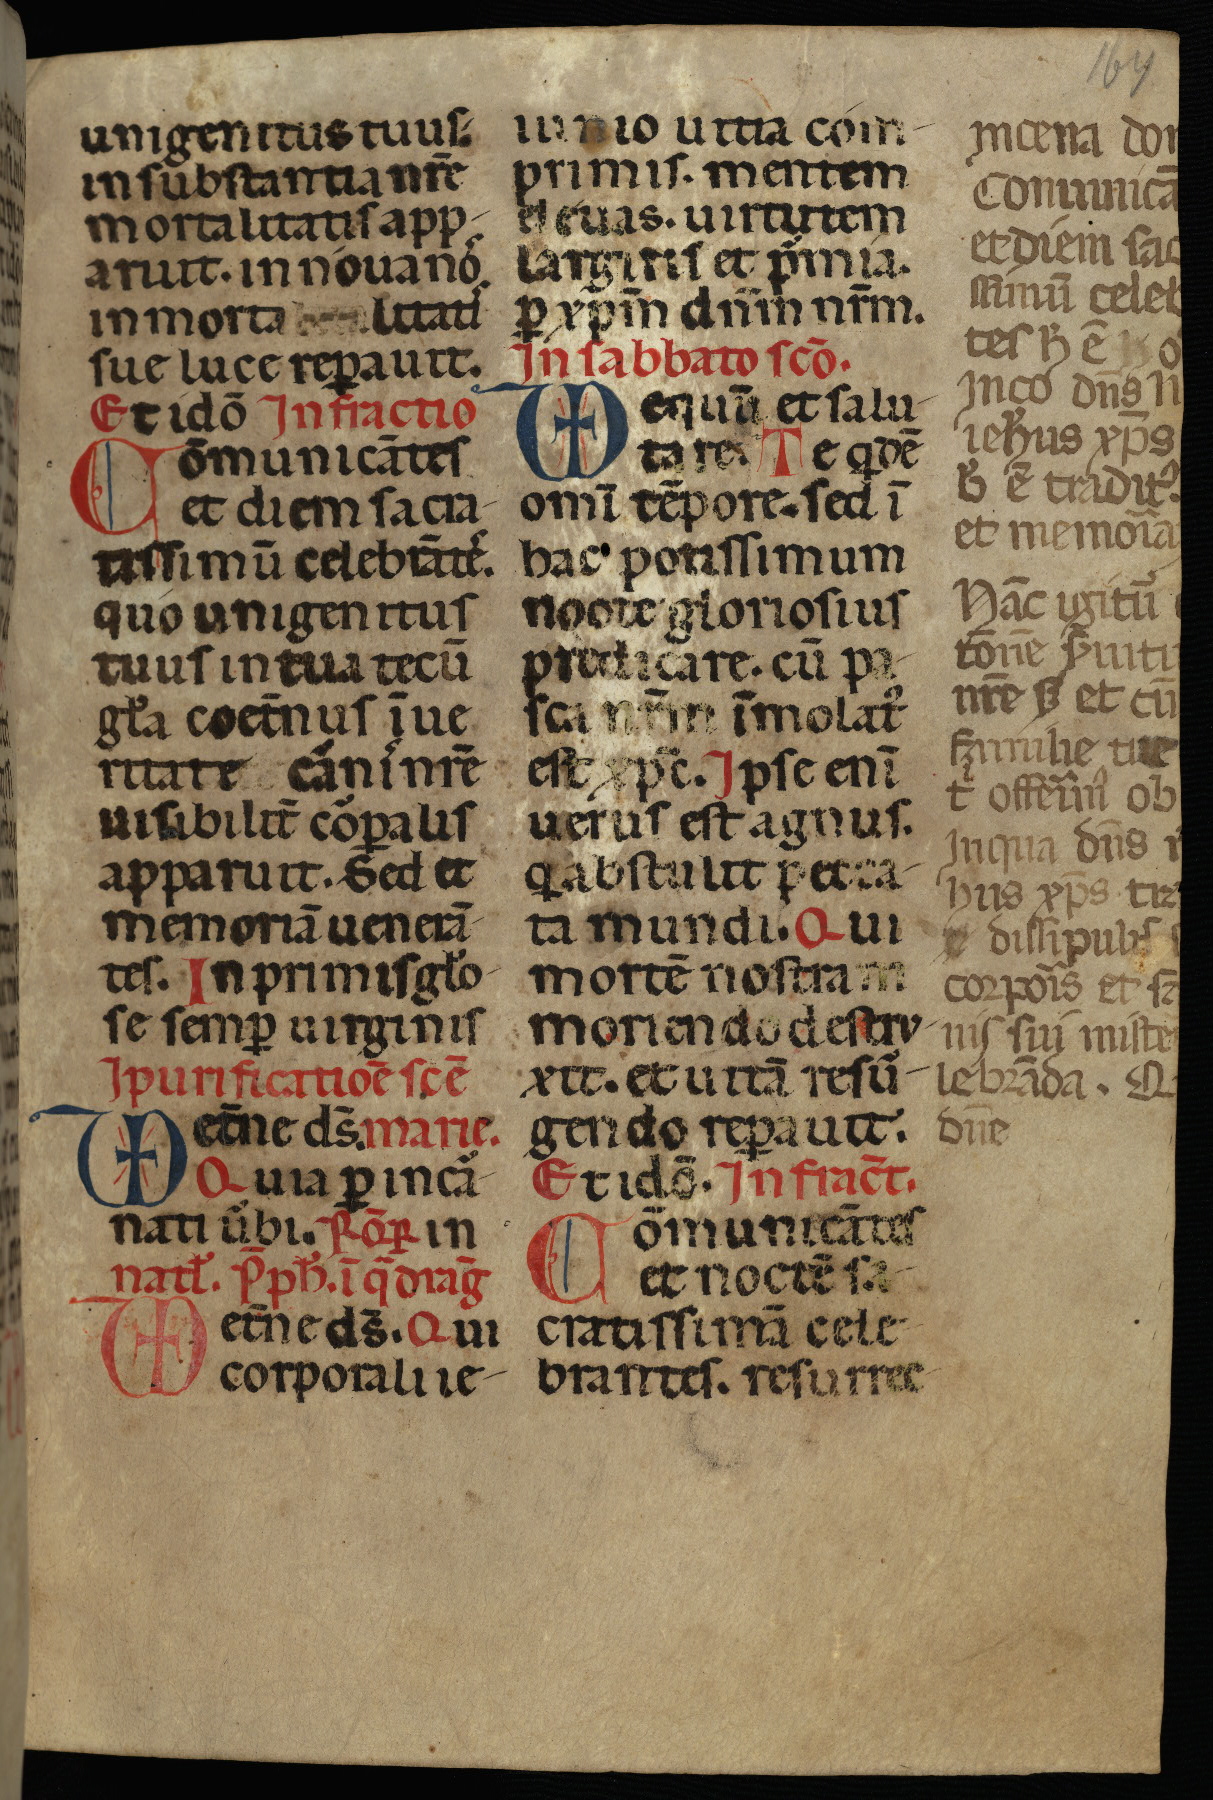 164
unigenitus tuus.
in substantia nr̄e
mortalitatis app-
aruit. in nouanó.
in morta litati
sue luce rep̱auit.
Et idō Infractio
Cōmunicātes
et diem sacra-
tissimū celebrāte.
quo unigenitus
tuus in tua tecū
gl̄a coet̄nus ī ue
ritate carnis nr̄e
uisibilit̄ corp̱alis
apparuit. Sed et
memoriā uenerā-
tes. In primis glo-
se semp̱ uirginis
I purificatioē scē
VD et̄ne ds̄. marie.
Quia p̱ incar-
nati ubi. in
natl. p̄ph. ī qdrag
VD et̄ne ds̄. Qui
corporali ie-
iunio uitia com-
primis. mentem
eleuas. uirtutem
largiris et p̄mia.
p̱ xp̄m dn̄m nr̄m.
In sabbato scō.
VD equū et salu-
tare. Te qdē
omī tēpore. sed ī
hac potissimum
nocte gloriosius
predicare. cū pa-
sca nr̄m īmolat'
est xp̄c. Ipse enī
uerus est agnus.
q abstulit pecca-
ta mundi. Qui
mortē nostram
moriendo destru-
xit. et uitā resur-
gendo rep̱auit.
Et idō. In fract̄.
Cōmunicātes
et noctē sa-
cratissimā cele-
brantes. resurrec-
In cena dom
Comunicā
et diem sac
ssimū celeb
tes
in co dn̄s n
iehus xp̄s
ē tradit'.
et memoīa
Hāc igitū
nr̄e et cū
familie tue
t offerim' ob
In qua dn̄s
hus xp̄s tr
dissipul'
corpoīs et s
nis sui miste
lebrāda. Q
dn̄e